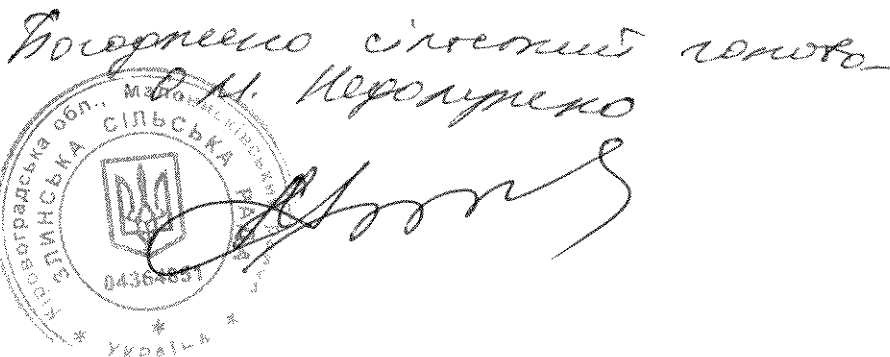 Погоджено сільський голова
О.М. Недолуженко
Кіровоградська обл., Маловисківський район
ЗЛИНСЬКА СІЛЬСЬКА РАДА
04364851
* Україна *